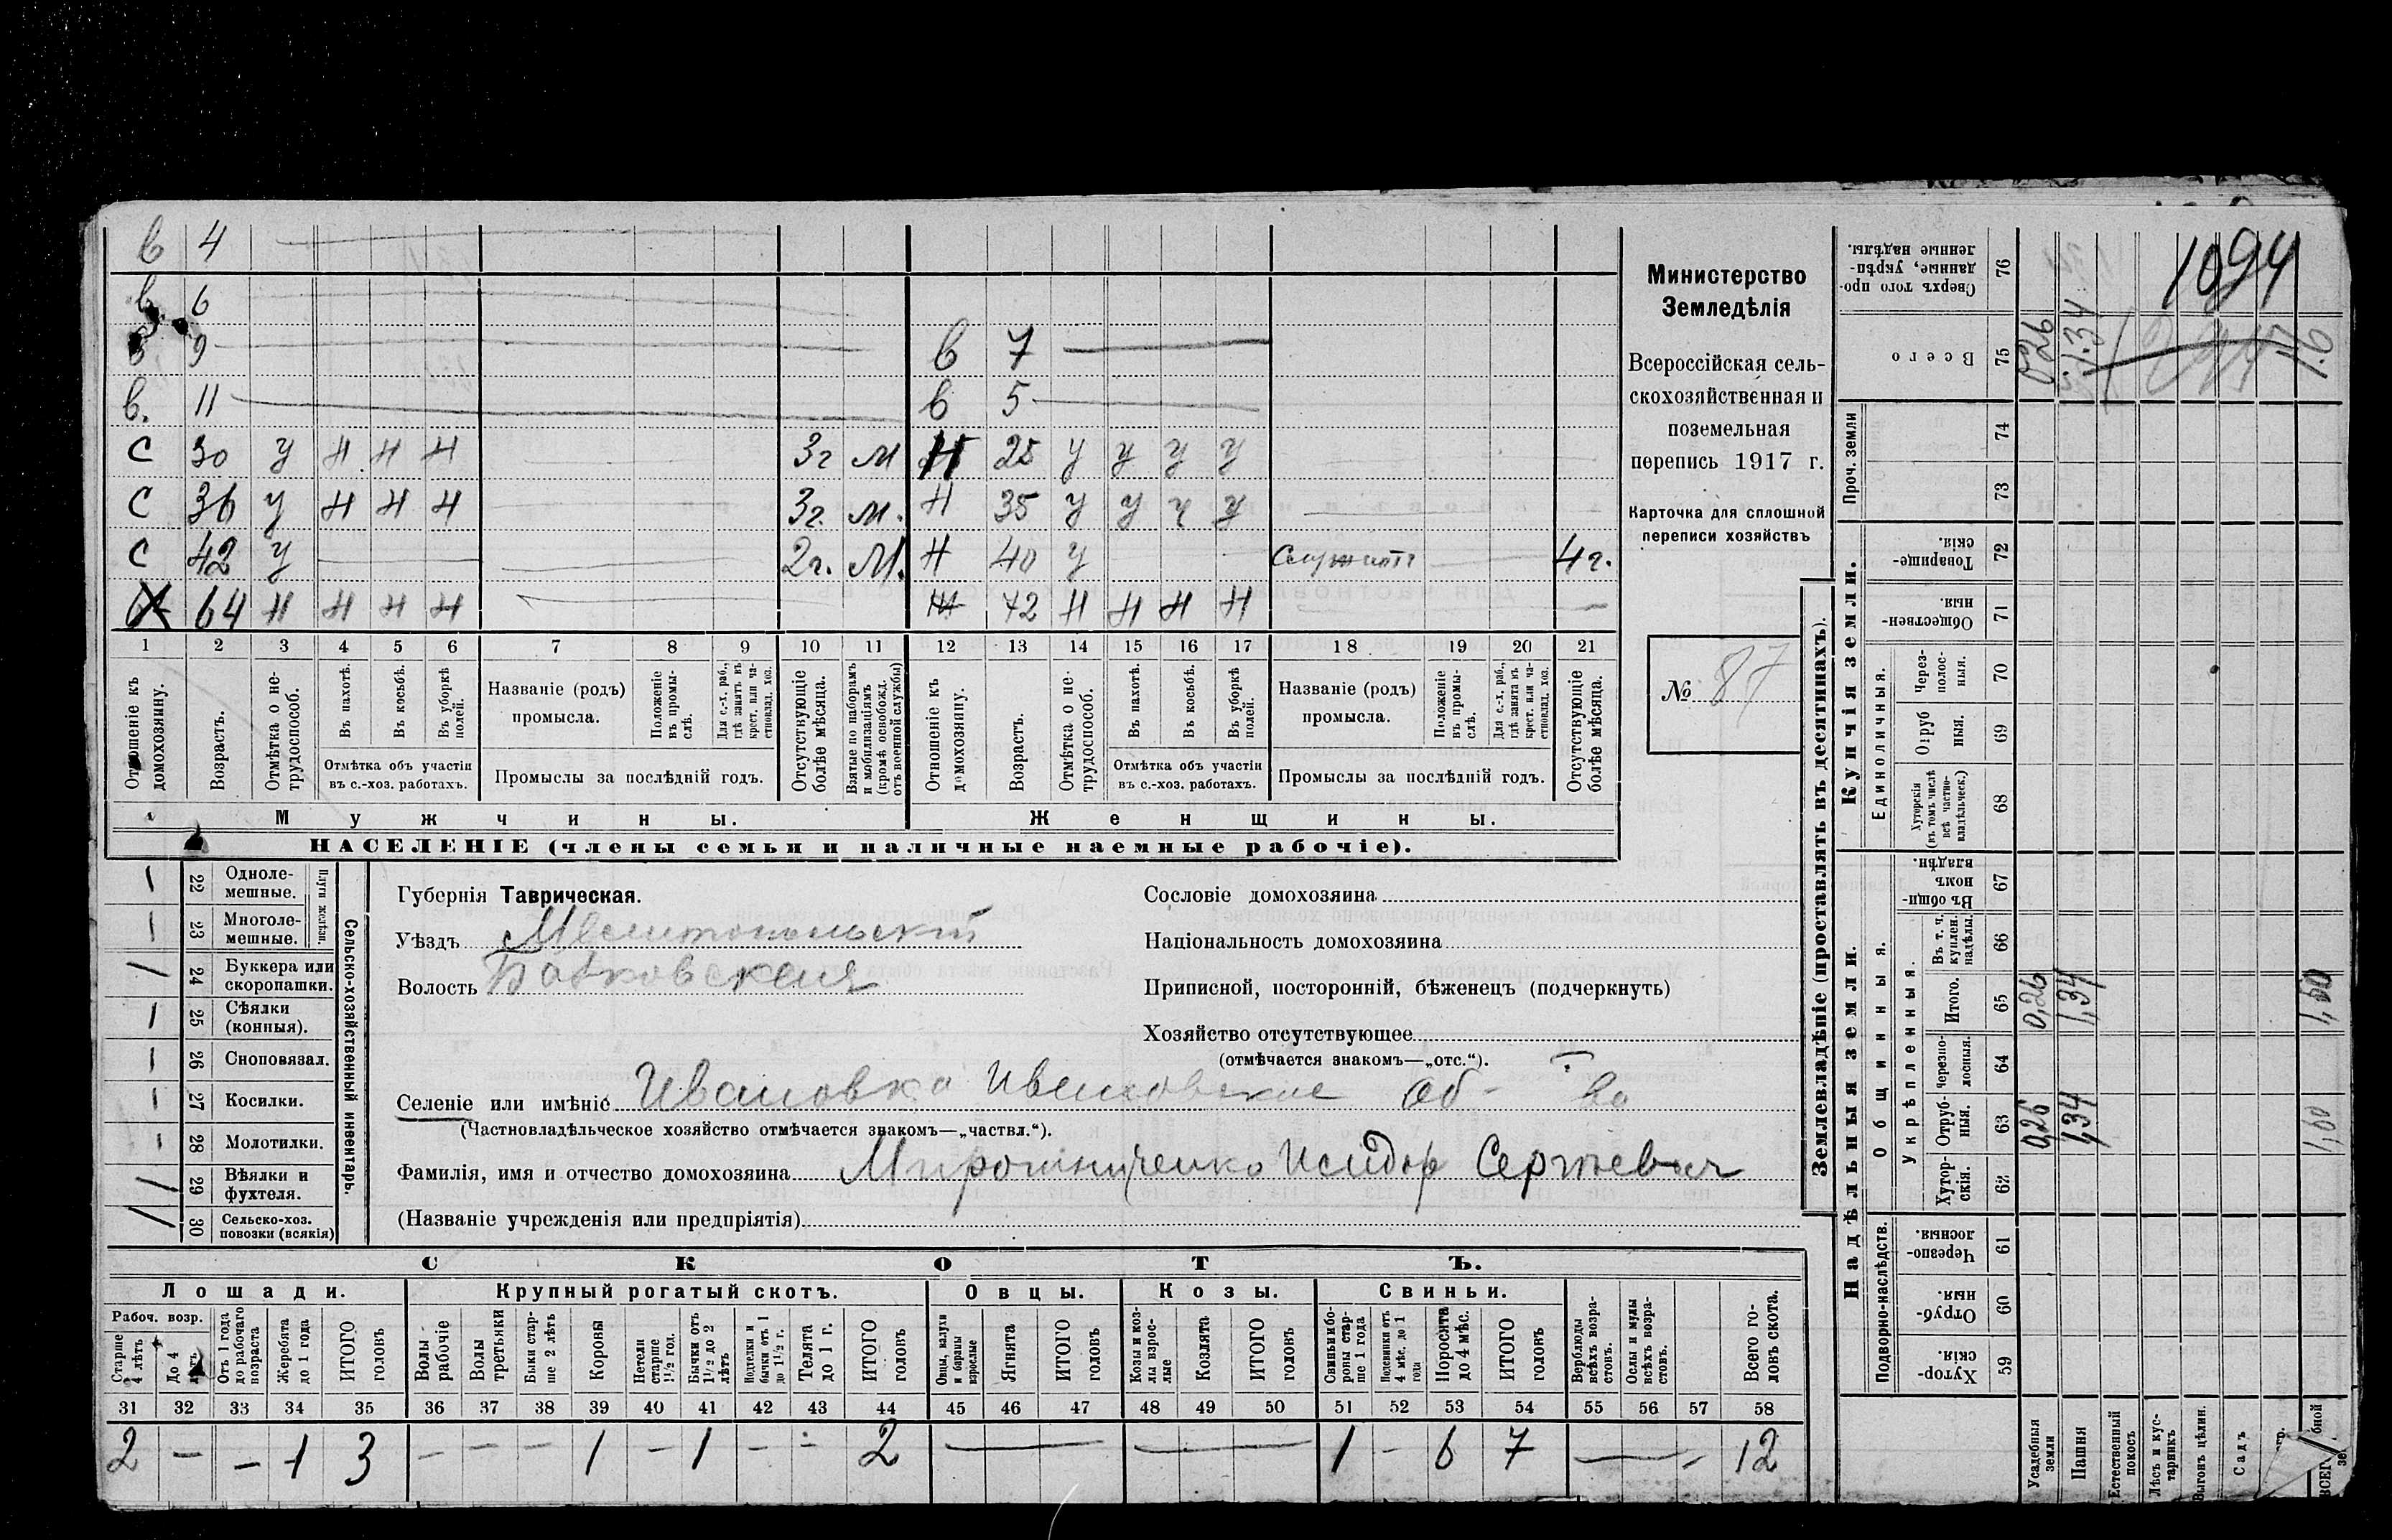 в 4
в 6
в 9 в 7
в. 11 в 5
с 30 у н н н 3г м н 25 у у у у
с 36 у н н н 3г. м. н 35 у у у у
с 42 у 2г. М. н 40 у служитъ 4г.
64 н н н н 72 н н н н
1 2 3 4 5 6 7 8 9 10 11 12 13 14 15 16 17 18 19 20 21
Отношеніе къ домохозяину.
Возрастъ.
Отмѣтка о нетрудоспособ.
Въ пахотѣ.
Въ косьбѣ.
Въ уборкѣ полей.
Отмѣтка объ участіи въ с.-хоз. работахъ.
Названіе (родъ) промысла.
Положеніе въ промыслѣ.
Для с.-х. раб., гдѣ занятъ въ крест. или частновлад. хоз.
Промыслы за послѣдній годъ.
Отсутствующіе болѣе мѣсяца.
Взятые по наборамъ и мобилизаціямъ (кромѣ освобожд. отъ военной службы)
Отношеніе къ домохозяину.
Возрастъ.
Отмѣтка о нетрудоспособ.
Въ пахотѣ.
Въ косьбѣ.
Въ уборкѣ полей.
Отмѣтка объ участіи въ с.-хоз. работахъ.
Названіе (родъ) промысла.
Положеніе въ промыслѣ.
Для с.-х. раб., гдѣ занятъ въ крест. или частновлад. хоз.
Промыслы за послѣдній годъ.
Отсутствующіе болѣе мѣсяца.
Мужчины. Женщины.
НАСЕЛЕНІЕ (члены семьи и наличные наемные рабочіе).
Министерство
Земледѣлія
Всероссійская сель-
скохозяйственная и
поземельная
перепись 1917 г.
Карточка для сплошной
переписи хозяйствъ
№ 87
22 Одноле-
мешные.
23 Многоле-
мешные.
Плуги желѣзн.
24 Буккера или
скоропашки.
25 Сѣялки
(конныя).
26 Сноповязал.
27 Косилки.
28 Молотилки.
29 Вѣялки и
фухтеля.
30 Сельско-хоз.
повозки (всякія)
Сельско-хозяйственный инвентарь.
Губернія Таврическая.
Уѣздъ Мелитопольскій
Волость
Сословіе домохозяина
Національность домохозяина
Приписной, посторонній, бѣженецъ (подчеркнуть)
Хозяйство отсутствующее
(отмѣчается знакомъ—„отс.“).
Селеніе или имѣніе Ивановка Ивановское об-во
(Частновладѣльческое хозяйство отмѣчается знакомъ—„частвл.“).
Фамилія, имя и отчество домохозяина Мирошниченко Исидор Сергѣевич
(Названіе учрежденія или предпріятія)
СКОТЪ.
Лошади. Крупный рогатый скотъ. Овцы. Козы. Свиньи.
Рабоч. возр.
Старше 4 лѣтъ
До 4 лѣтъ
Отъ 1 года до рабочаго возраста
Жеребята до 1 года
ИТОГО головъ
Волы рабочіе
Волы третьяки
Быки старше 2 лѣтъ
Коровы
Нетели старше 1½ год.
Бычки отъ 1½ до 2 лѣтъ
Подтелки и бычки отъ 1 до 1½ г.
Телята до 1 г.
ИТОГО головъ
Овцы, валухи и бараны взрослые
Ягнята
ИТОГО головъ
Козы и козлы взрослые
Козлята
ИТОГО головъ
Свиньи боровы старше 1 года
Подсвинки отъ 4 мѣс. до 1 года
Поросята до 4 мѣс.
ИТОГО головъ
Верблюды всѣхъ возрастовъ.
Ослы и мулы всѣхъ возрастовъ.
Всего головъ скота.
31 32 33 34 35 36 37 38 39 40 41 42 43 44 45 46 47 48 49 50 51 52 53 54 55 56 57 58
2 — — 1 3 — — — 1 — 1 — — 2 — — 1 — 6 7 — 12
Землевладѣніе (проставлять въ десятинахъ).
Надѣльныя земли. Купчія земли. Проч. земли
Подворно-наслѣдств.
Общинныя.
Укрѣпленныя.
Единоличныя.
59 Хутор-
скія.
60 Отруб-
ныя.
61 Черезпо-
лосныя.
62 Хутор-
скія.
63 Отруб-
ныя. 0,26 1,34 1,60
64 Черезпо-
лосныя.
65 Итого. 0,26 1,34 1,60
66 Въ т. ч. куплен. надѣлы.
67 Въ общи-
номъ
владѣн.
68 Хуторскія (въ томъ числѣ всѣ частно-владѣльческ.)
69 Отруб
ныя.
70 Через-
полос-
ныя.
71 Обществен-
ныя.
72 Товарище-
скія.
73
74
75 Всего 0,26 1.34 1.6
76 Сверхъ того про-
данные, укрѣп-
ленные надѣлы.
1094
Усадебныя земли
Пашня
Естественный покосъ
Лѣсъ и кустарникъ
Выгонъ цѣлин.
Садъ